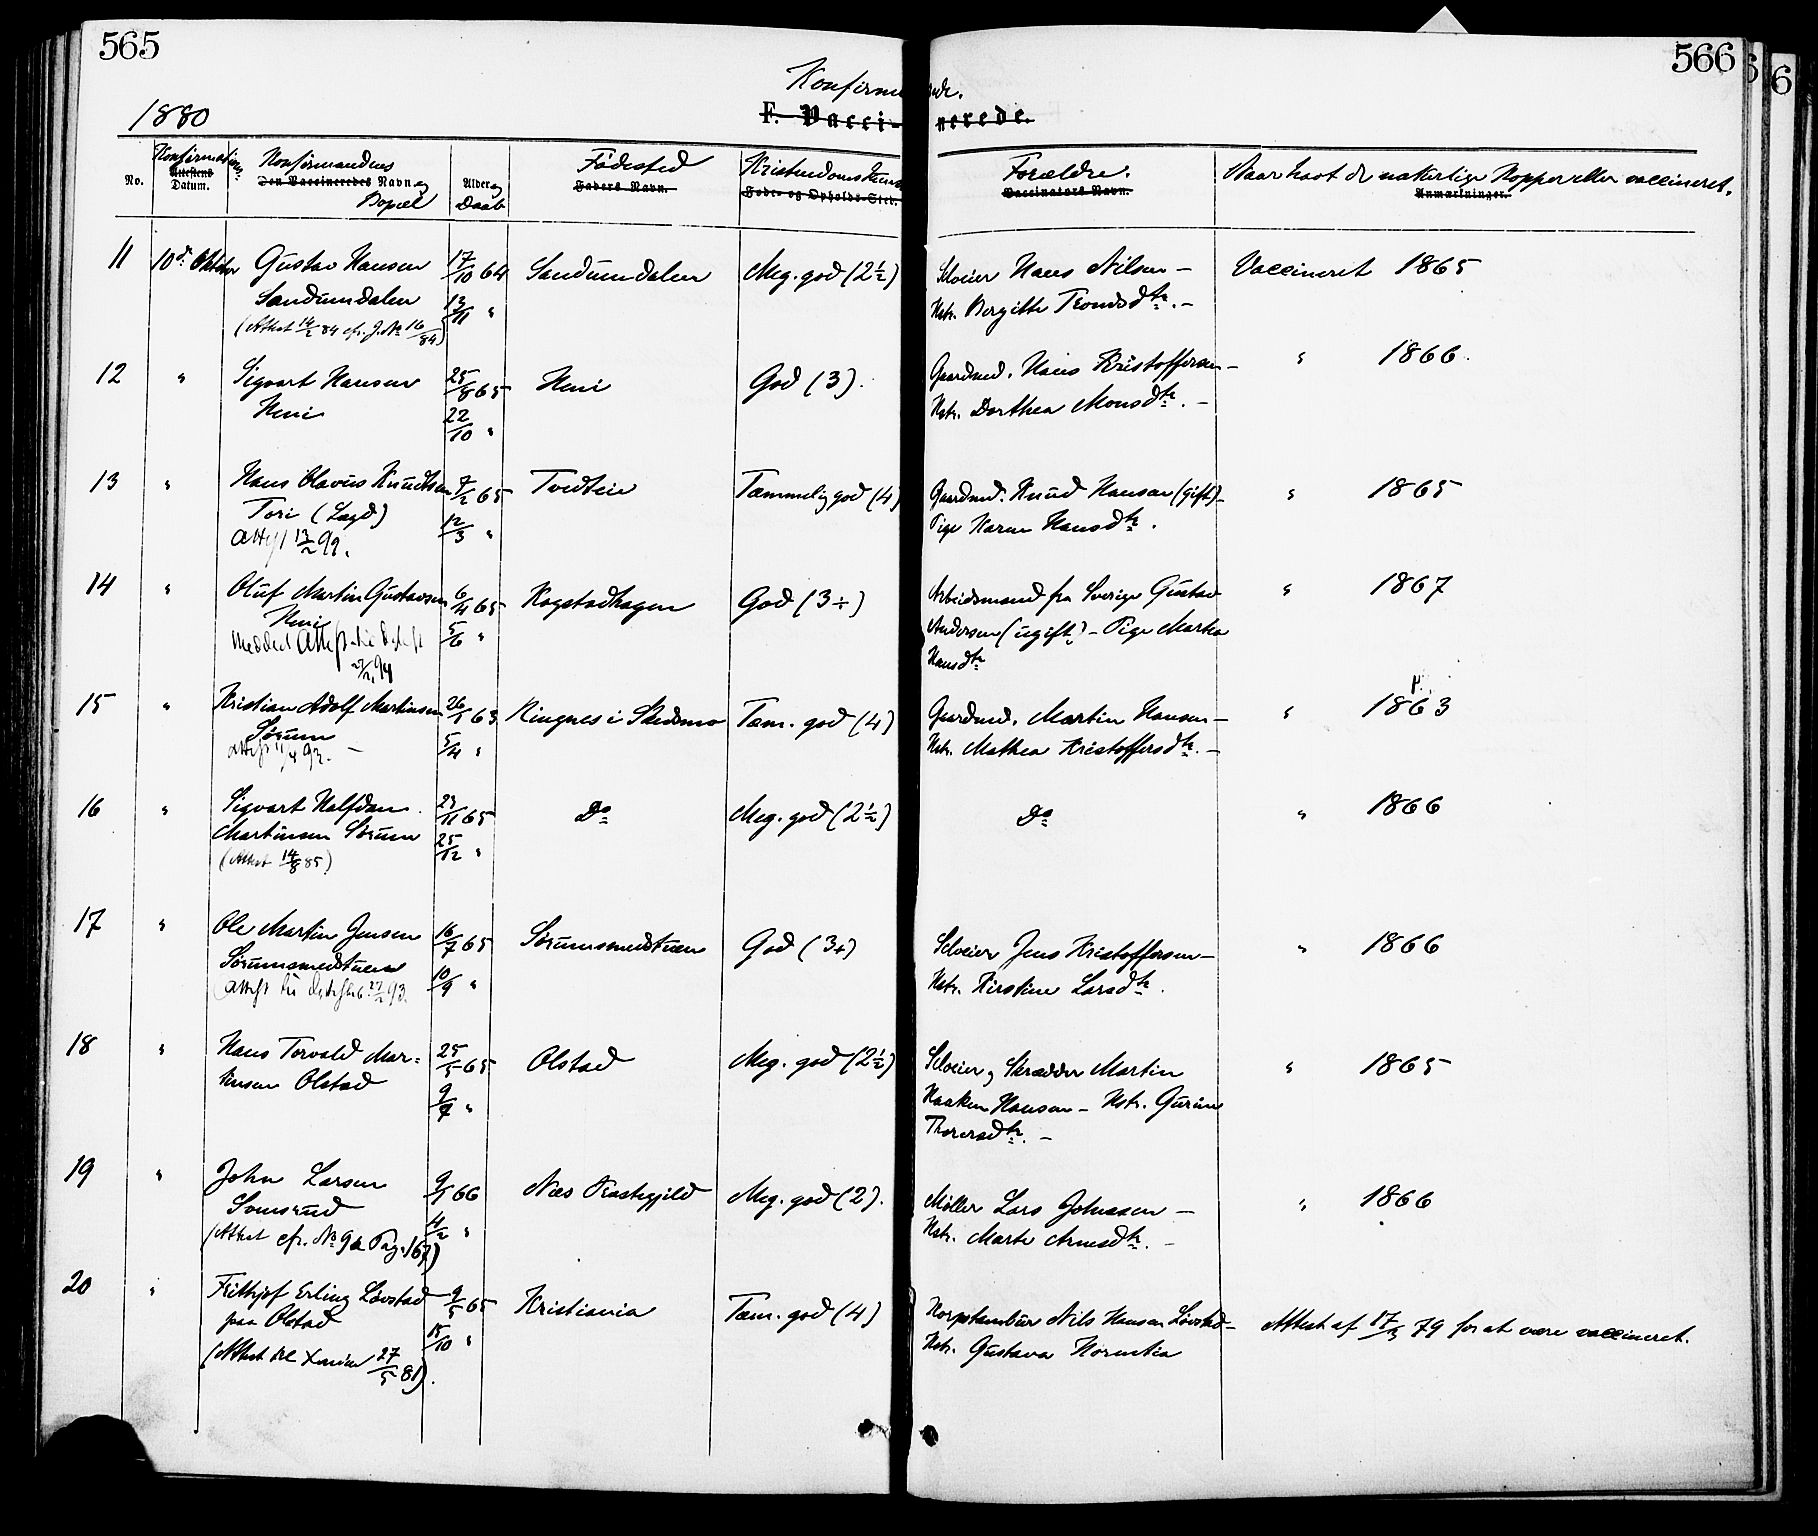 565
566
Konfirmerede.
1880
F. Vaccinerede.
No.
Konfirmations
Attestens
Datum.
Konfirmandens
Den Vaccineredes Navn og
Bopæl
Alder og
Daab
Fødested
Faders Navn.
Kristendomskunds
Føde- og Opholds-Sted.
Forældre.
Vaccinators Navn.
Naar havt de naturlige Kopper eller vaccineret.
Anmærkninger.
11 10de Oktober Gustav Hansen 17/10 64 Sandumdalen Meg. god (2½) Selveier Hans Nilsen – Vaccineret 1865
Sandumdalen 13/11 " Hstr. Bergitte Trondsdtr. –
(Attest 14/2 84 cfr. J. No 16/84)
12 " Sigvart Hansen 25/8 65 Heni God (3). Gaardmd. Hans Kristoffersen – " 1866.
Heni 22/10 " Hstr. Dorthea Monsdtr. –
13 " Hans Olavus Knudtsen 7/2 65 Tvedtein Tammelig god (4) Gaardmd. Knud Hansen (gift) – " 1865
Tori (Lagd) 12/3 " Pige Karen Hansdtr.
Attest 13/2 99.
14 " Oluf Martin Gustavsen 6/4 65 Kogstadhagen God (3÷) Arbeidsmand fra Sverige Gustav " 1867
Heni 5/6 " Andersen (ugift) – Pige Marta
Meddelt Attest
Hansdtr
15 " Kristian Adolf Martinsen 26/1 63 Ringnes i Skedsmo Tam. god (4) Gaardmd. Martin Hansen – " 1863
Sørum 5/4 " Hstr. Mathea Kristoffersdtr. –
Attest 11/4 93. –
16 " Sigvart Halfdan 23/11 65 Do Meg. god (2½) Do " 1866
Martinsen Sørum 25/12 "
(Attest 14/8 85)
17 " Ole Martin Jensen 16/7 65 Sørumsmedstuen God (3+) Selveier Jens Kristoffersen – " 1866
Sørumsmedstuen 10/9 " Hstr. Kirstine Larsdtr.
(Attest til 27/2 93.
18 " Hans Torvald Mar= 25/5 65 Olstad Meg. god (2½) Selveier og Skrædder Martin " 1865
tinsen Olstad 9/7 " Haaken Hansen – Hstr. Gurine
Thorersdtr. –
19 " John Larsen 9/1 66 Næs Præstegjeld Meg. god (2). Møller Lars Johnssen – " 1866
Somsrud 11/2 " Hstr. Marte Arnesdtr. –
(Attest cfr. No 9a Pag. 167)
20 " Frithjof Erling Løvstad 9/5 65 Kristiania Tam. god (4) Korpstambur Nils Hansen Løvstad – Attest af 17/3 79 for at være vaccineret.
paa Olstad 15/10 " Hstr. Gustava Hornetia
(Attest til 27/5 81).